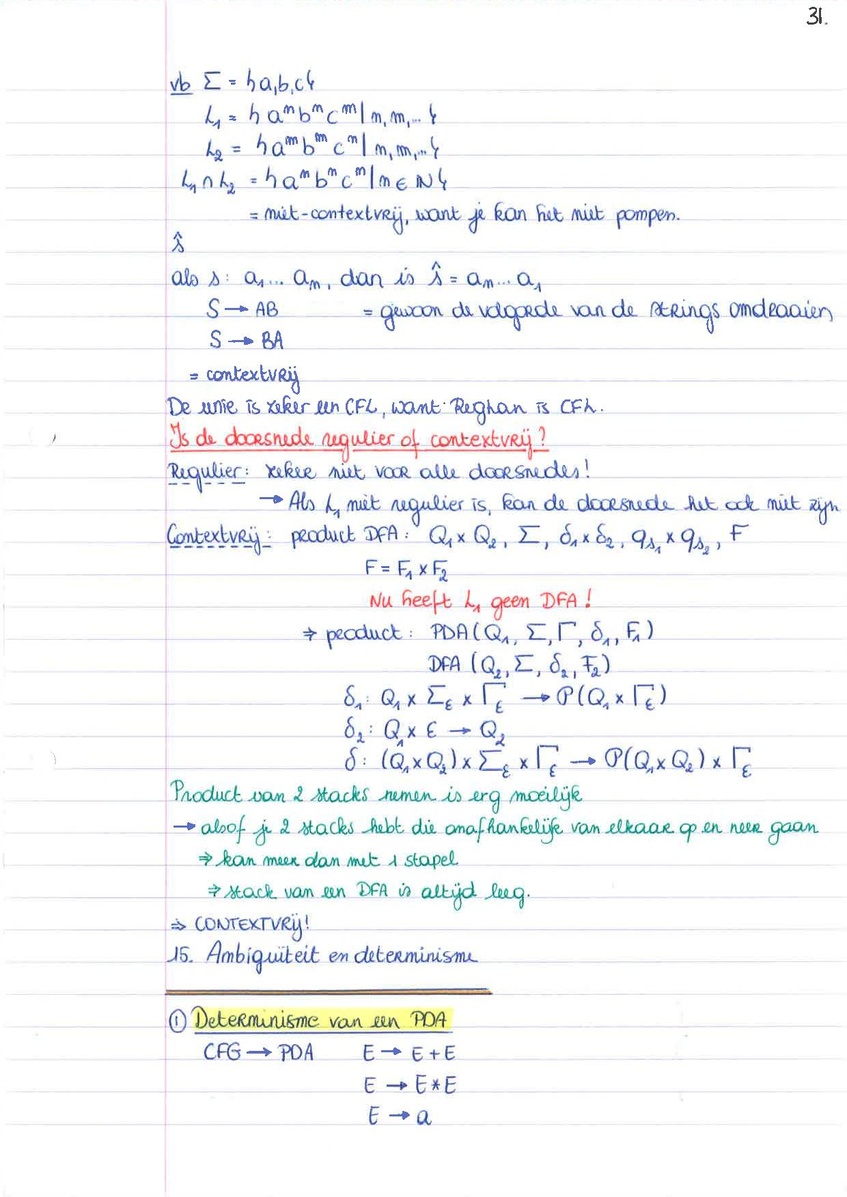 31.
vb Σ = {a,b,c}
L₁ = {aⁿbⁿcᵐ | n,m,...}
L₂ = {aᵐbⁿcⁿ | n,m,...}
L₁∩L₂ = {aⁿbⁿcⁿ | n ∈ ℕ}
= niet-contextvrij, want je kan het niet pompen.
ŝ
als s: a₁... aₙ, dan is ŝ = aₙ... a₁
S → AB = gewoon de volgorde van de strings omdraaien
S → BA
= contextvrij
De unie is zeker een CFL, want RegLan is CFL.
Is de doorsnede regulier of contextvrij?
Regulier: zeker niet voor alle doorsnedes!
→ Als L₁ niet regulier is, kan de doorsnede het ook niet zijn
Contextvrij: product DFA: Q₁ x Q₂, Σ, δ₁ x δ₂, qₛ₁ x qₛ₂, F
F = F₁ x F₂
Nu heeft L₁ geen DFA!
⇒ product: PDA (Q₁, Σ, Γ, δ₁, F₁)
DFA (Q₂, Σ, δ₂, F₂)
δ₁: Q₁ x Σ_ε x Γ_ε → P(Q₁ x Γ_ε)
δ₂: Q₁ x ε → Q₂
δ: (Q₁ x Q₂) x Σ_ε x Γ_ε → P(Q₁ x Q₂) x Γ_ε
Product van 2 stacks nemen is erg moeilijk
→ alsof je 2 stacks hebt die onafhankelijk van elkaar op en neer gaan
⇒ kan meer dan met 1 stapel
⇒ stack van een DFA is altijd leeg.
⇒ CONTEXTVRIJ!
15. Ambiguïteit en determinisme
① Determinisme van een PDA
CFG → PDA E → E + E
E → E * E
E → a